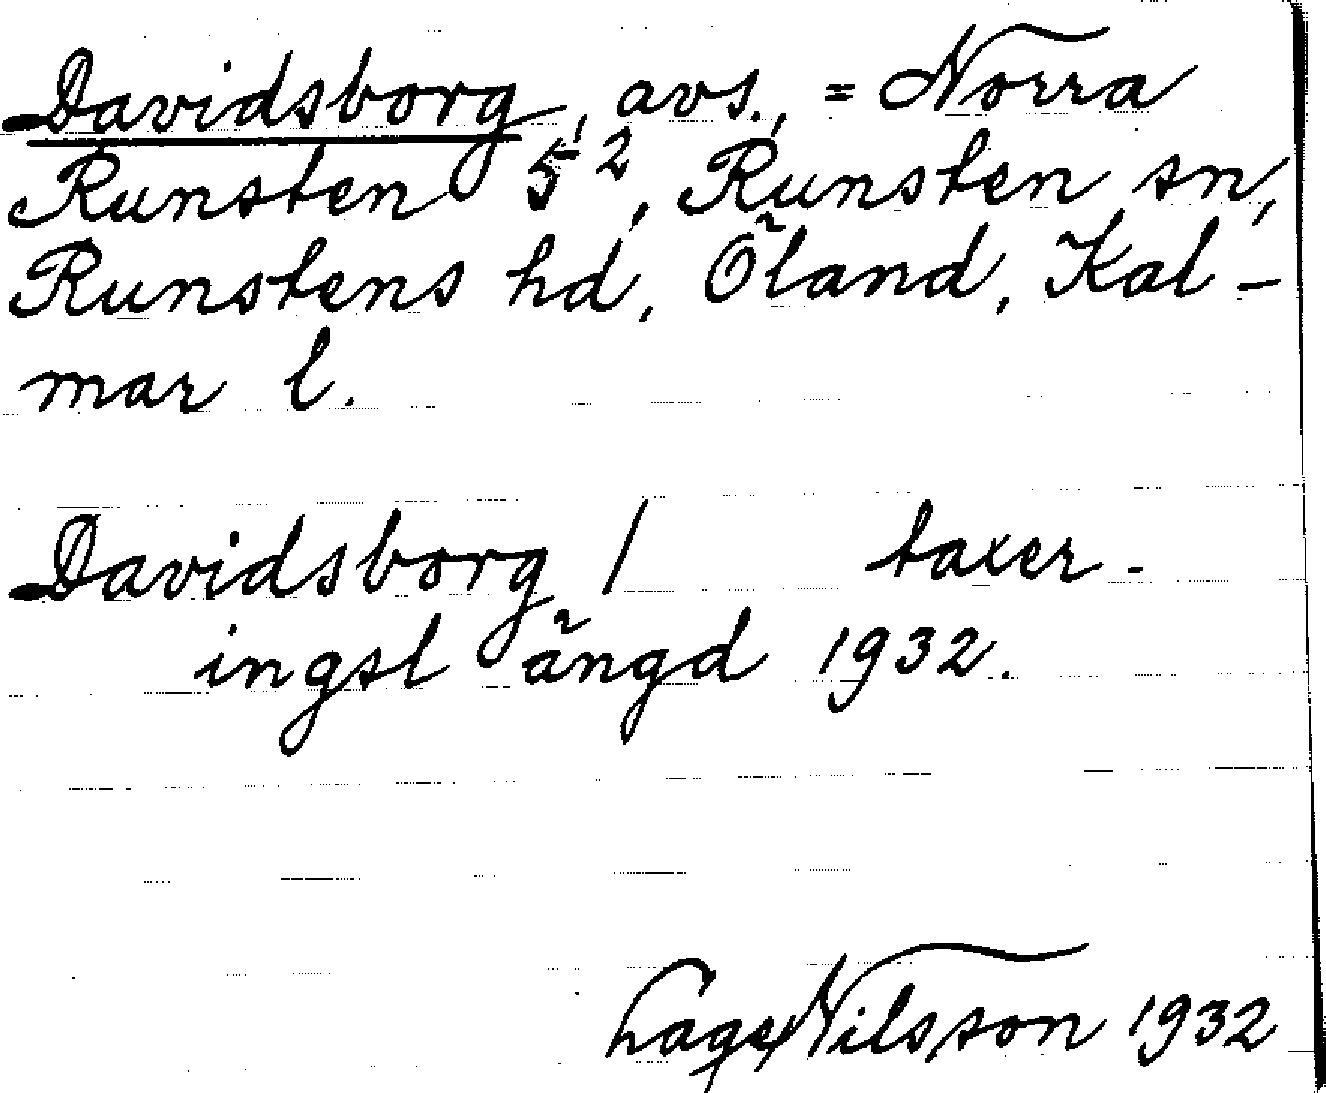 Davidsborg, avs., = Norra
Runsten 5², Runsten sn,
Runstens hd, Öland, Kal-
mar l.
Davidsborg / taxer-
ingslängd 1932.
Lage Nilsson 1932